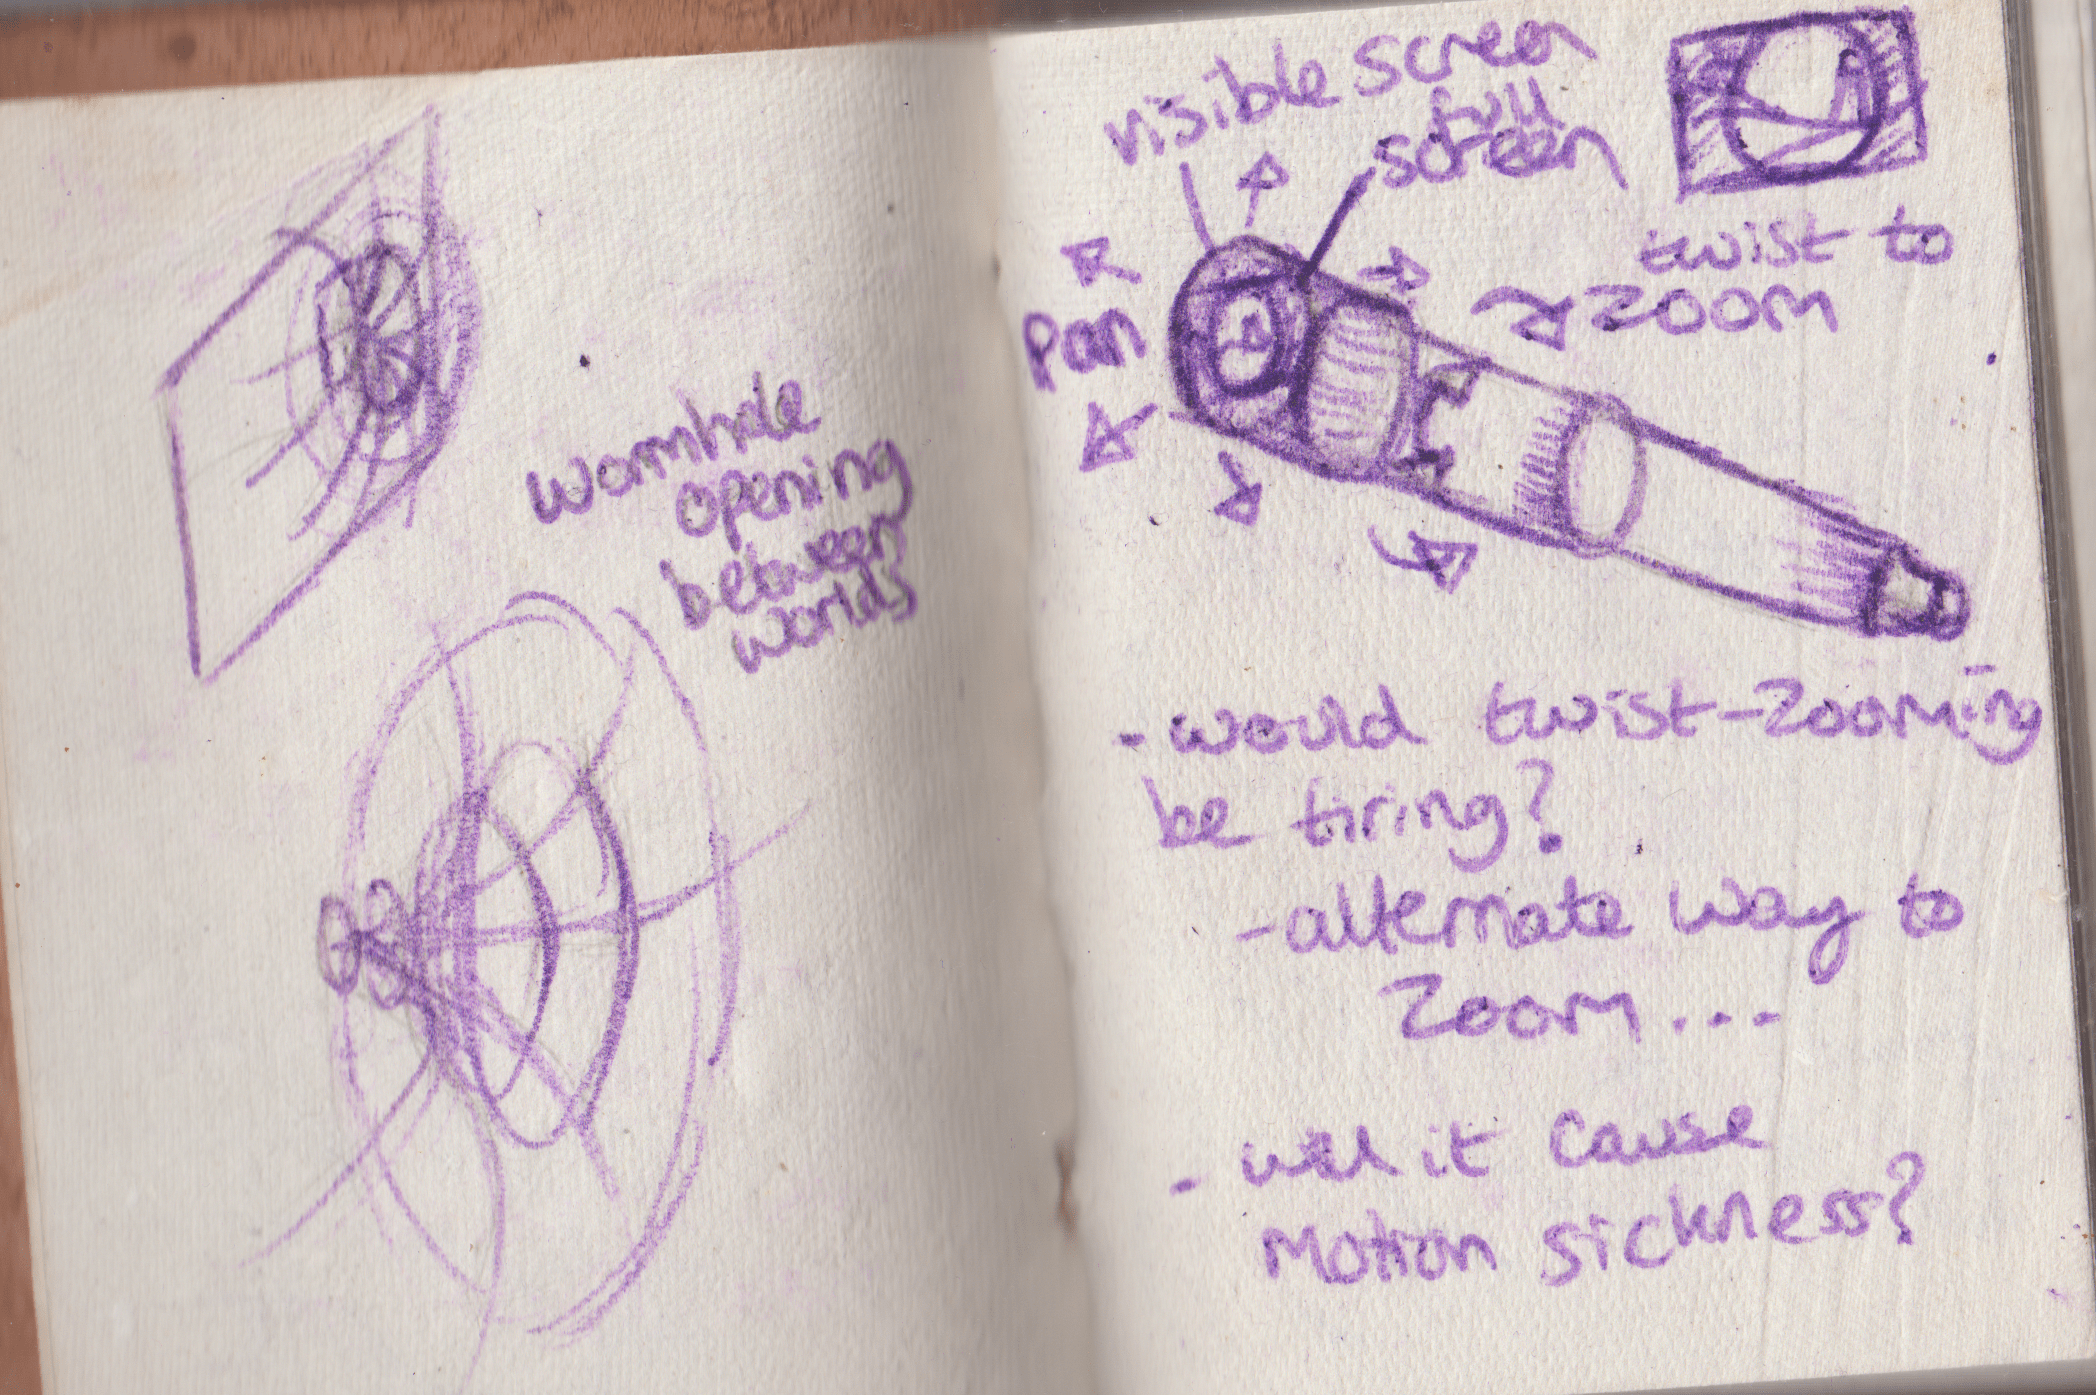 wormhole
opening
between
worlds
visible screen
full
screen
twist to
zoom
Pan
- would twist-zooming
be tiring?
- alternate way to
zoom...
- will it cause
motion sickness?